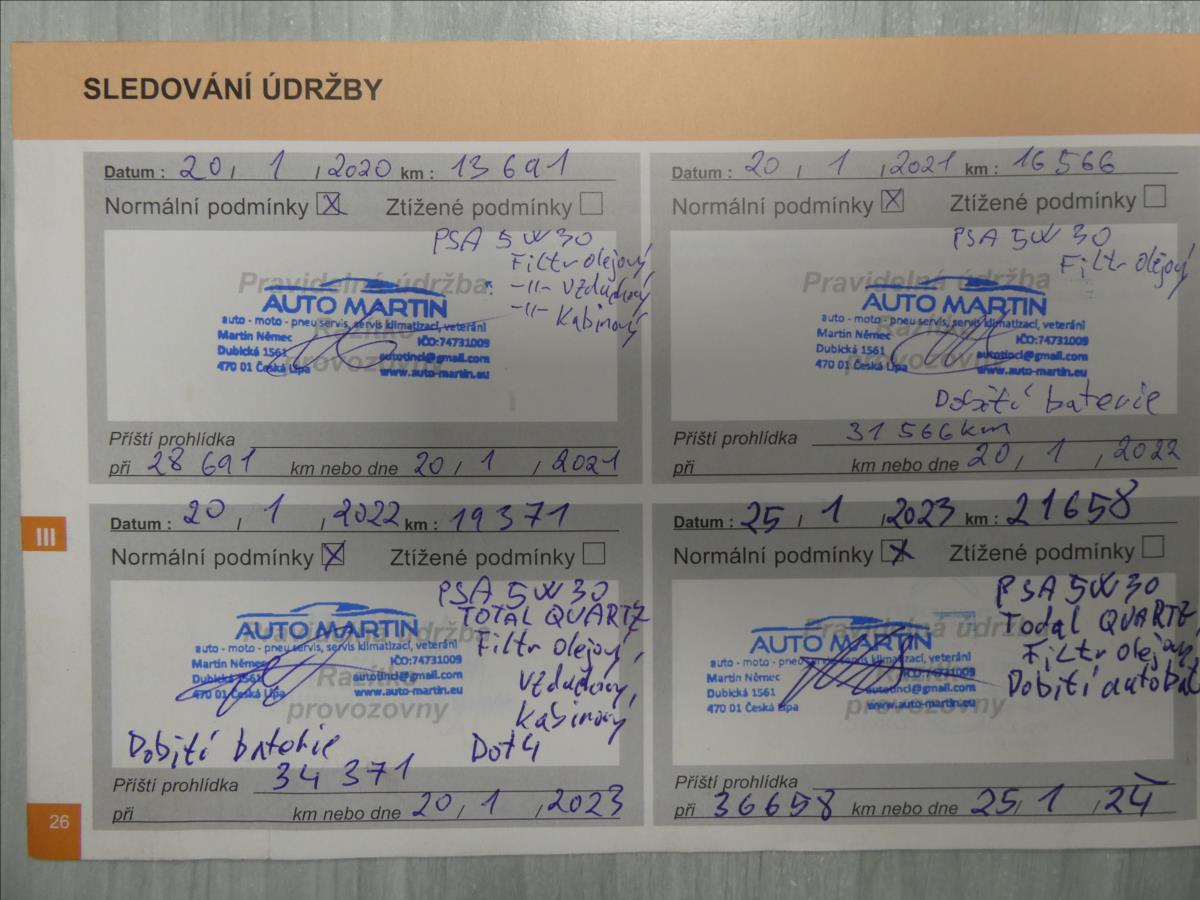 SLEDOVÁNÍ ÚDRŽBY
Datum : 20 / 1 / 2020 km : 13 691
Normální podmínky X Ztížené podmínky
PSA 5W30
Filtr olejový
-11- vzduchový
-11- kabinový
Pravidelná údržba
Razítko
provozovny
AUTO MARTIN
auto - moto - pneu servis, servis klimatizací, veteráni
Martin Němec IČO:74731009
Dubická 1561 autotinci@gmail.com
470 01 Česká Lípa www.auto-martin.eu
Příští prohlídka
při 28 691 km nebo dne 20 / 1 / 2021
Datum : 20 / 1 / 2021 km : 16 566
Normální podmínky X Ztížené podmínky
PSA 5W30
Filtr olejový
Pravidelná údržba
Razítko
provozovny
AUTO MARTIN
auto - moto - pneu servis, servis klimatizací, veteráni
Martin Němec IČO:74731009
Dubická 1561 autotinci@gmail.com
470 01 Česká Lípa www.auto-martin.eu
Dobití baterie
Příští prohlídka 31 566 km
při km nebo dne 20 / 1 / 2022
III
Datum : 20 / 1 / 2022 km : 19 371
Normální podmínky X Ztížené podmínky
PSA 5W30
TOTAL QUARTZ
Filtr olejový,
vzduchový,
kabinový
Dot4
Pravidelná údržba
Razítko
provozovny
AUTO MARTIN
auto - moto - pneu servis, servis klimatizací, veteráni
Martin Němec IČO:74731009
Dubická 1561 autotinci@gmail.com
470 01 Česká Lípa www.auto-martin.eu
Dobití baterie
Příští prohlídka 34 371
při km nebo dne 20 / 1 / 2023
Datum : 25 / 1 / 2023 km : 21658
Normální podmínky X Ztížené podmínky
PSA 5W30
Total QUARTZ
Filtr olejový,
Dobití autobat
Pravidelná údržba
Razítko
provozovny
AUTO MARTIN
auto - moto - pneu servis, servis klimatizací, veteráni
Martin Němec IČO:74731009
Dubická 1561 autotinci@gmail.com
470 01 Česká Lípa www.auto-martin.eu
Příští prohlídka
při 36658 km nebo dne 25 / 1 / 24
26